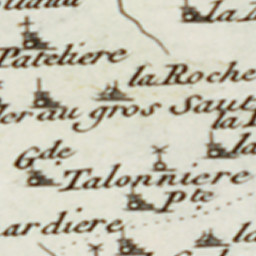 la
Pateliere
la Roche
au gros Saut
la
Gde
la
Talonniere
Pte
ardiere
la